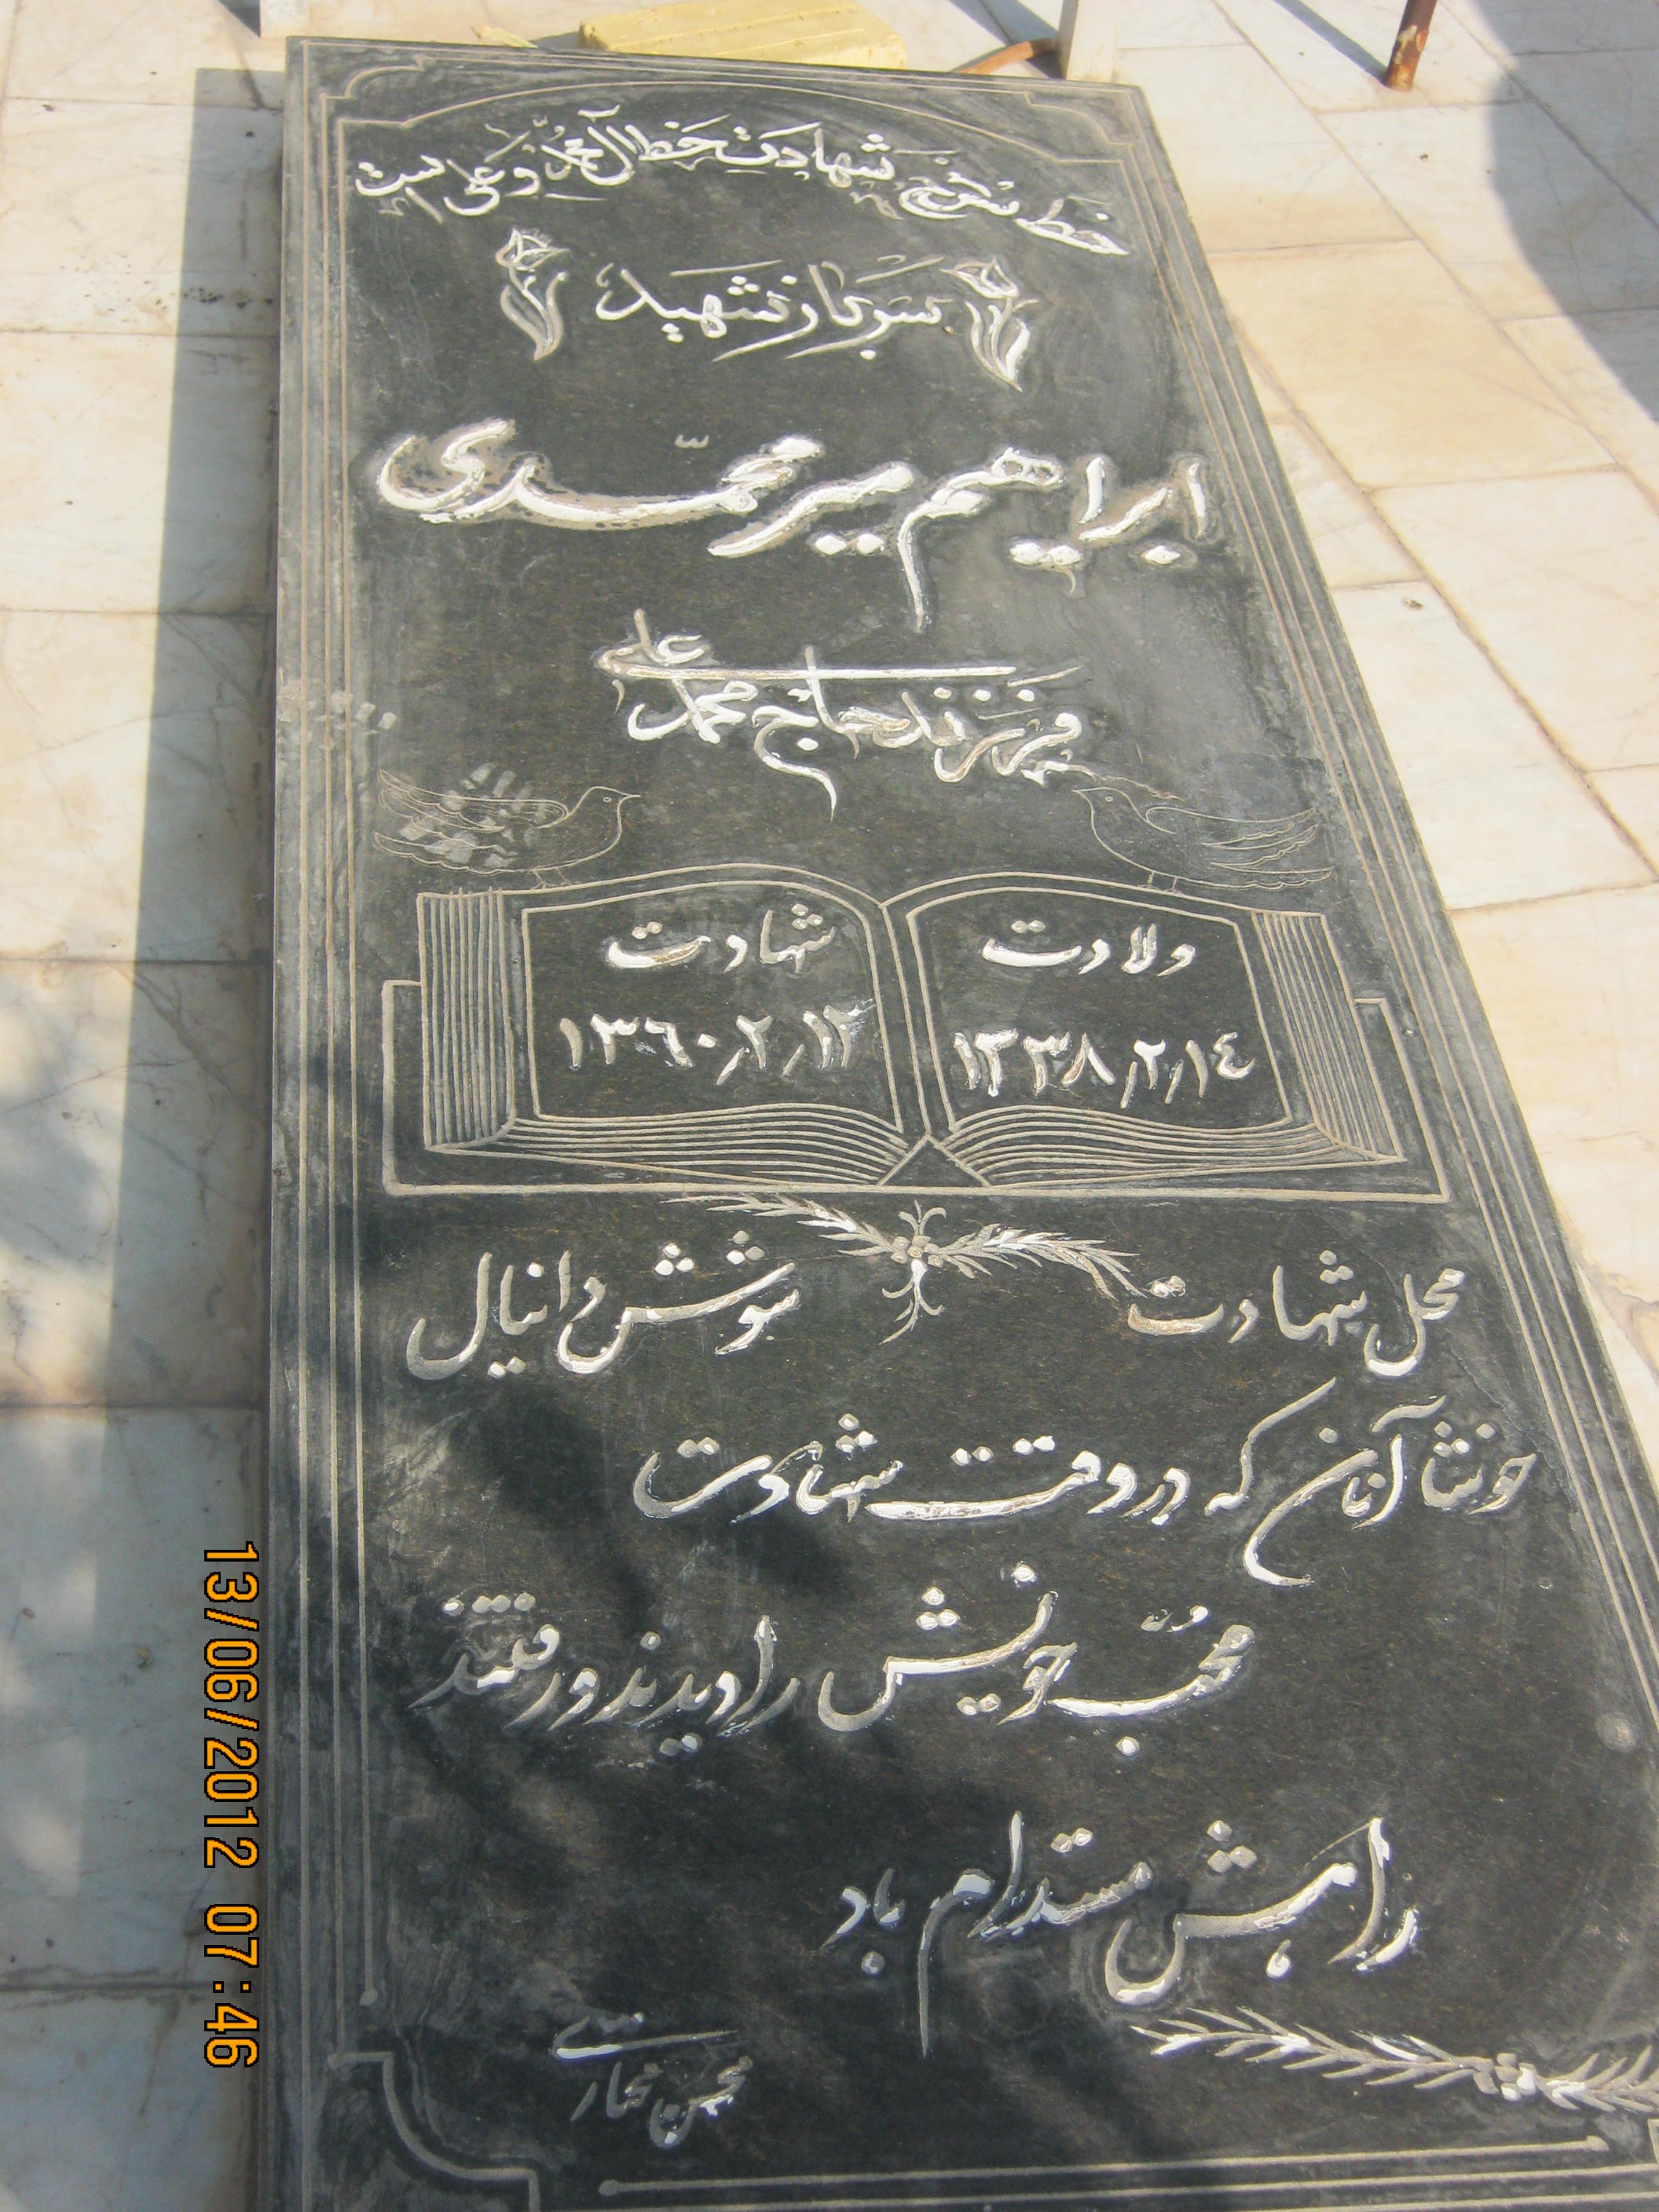 خط سرخ شهادت خط آل محمد و علی است
سرباز شهید
ابراهیم میرمحمّدی
فرزند حاج محمد علی
ولادت
۱۳۳۸٫۲٫۱٤
شهادت
۱۳٦۰٫۲٫۱۳
محل شهادت شوش دانیال
خوشا آنان که در وقت شهادت
محبّ خویش را دیدند و رفتند
راهش مستدام باد
محسن
13/06/2012 07:46